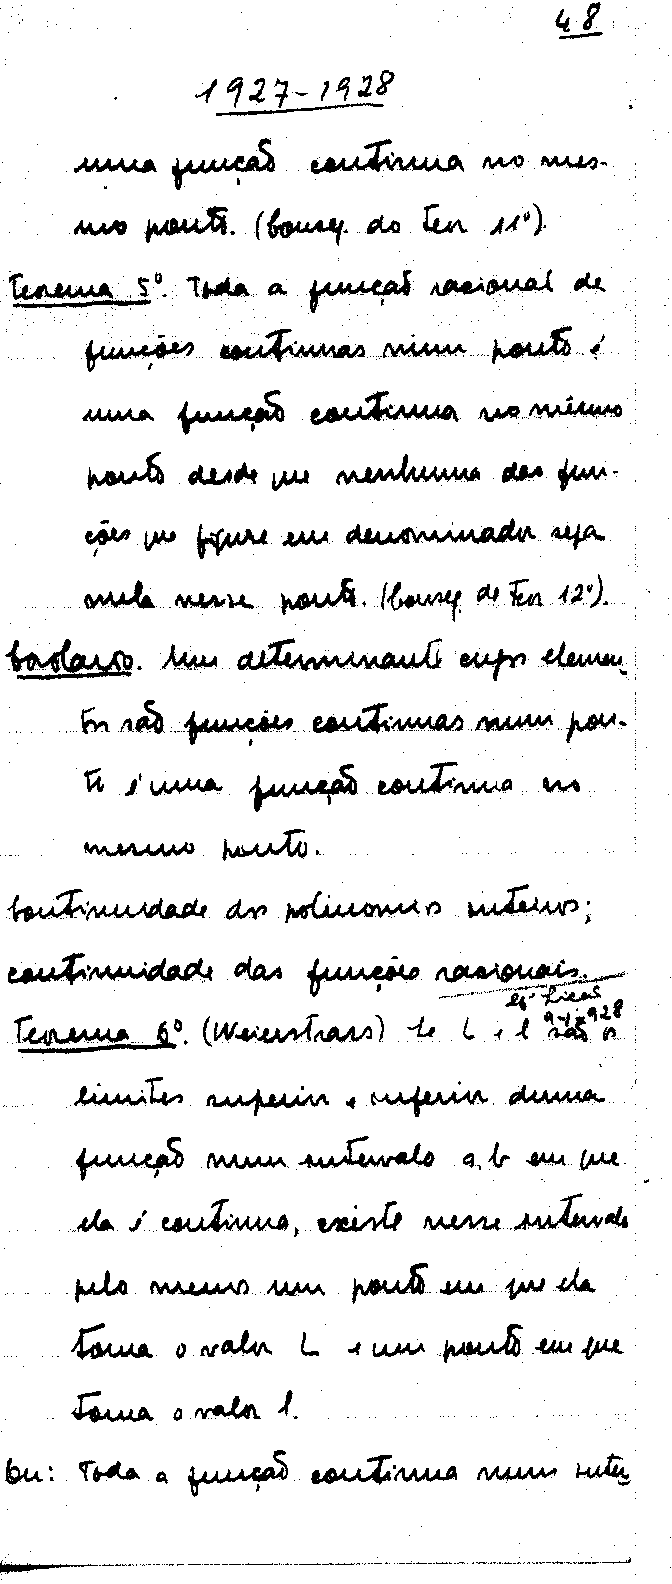 48
1927-1928
uma função continua no mes-
mo ponto. (Conseq. do Teor 11º).
Teorema 5º. Toda a função racional de
funções continuas num ponto é
uma função continua no mesmo
ponto desde que nenhuma das fun-
ções que figure em denominador seja
nula nesse ponto. (Conseq. do Teor 12º).
Corolario. Um determinante cujos elemen-
tos são funções continuas num pon-
to é uma função continua no
mesmo ponto.
Continuidade dos polinomios inteiros;
continuidade das funções racionais.
Lição
9-1-928
Teorema 6º. (Weierstrass) Se L e l são os
limites superior e inferior duma
função num intervalo a, b em que
ela é continua, existe nesse intervalo
pelo menos um ponto em que ela
toma o valor L e um ponto em que
toma o valor l.
Ou: Toda a função continua num inter-